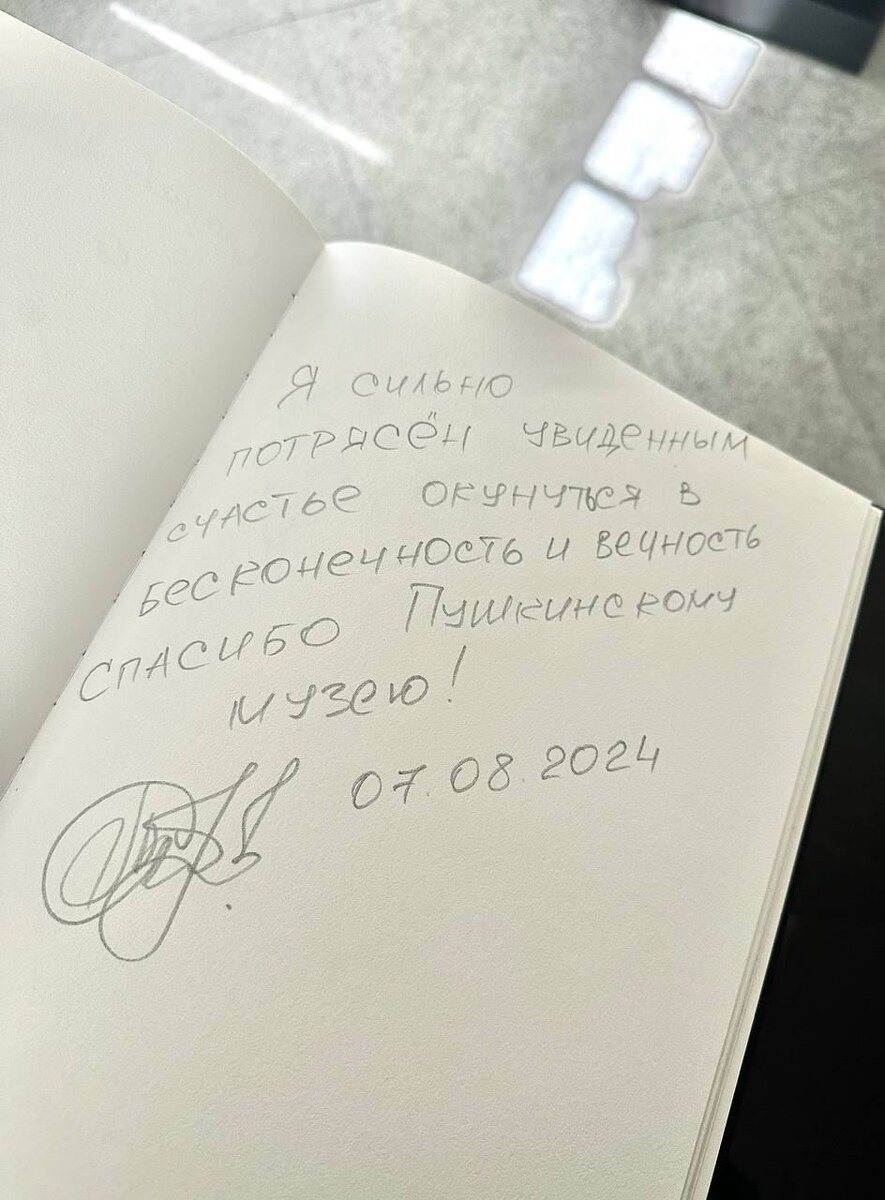 Я сильно
потрясён увиденным
счастье окунуться в
бесконечность и вечность
спасибо Пушкинскому
музею!
07.08.2024